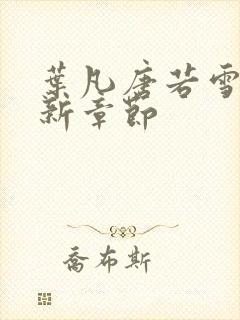 葉凡唐若雪
新章節
喬布斯